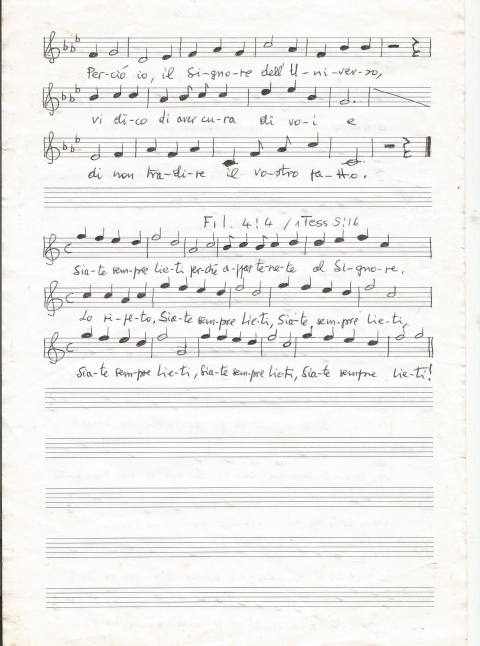 Per-ciò io, il Si-gno-re dell' U-ni-ver-so,
vi di-co di aver cu-ra di vo-i e
di non tra-di-re il vo-stro pa-tto.
Fil. 4:4 / 1 Tess 5:16
Sia-te sem-pre lie-ti per-ché a-ppar-te-ne-te al Si-gno-re,
Lo ri-pe-to, Sia-te sem-pre lie-ti, Sia-te sem-pre lie-ti,
Sia-te sem-pre lie-ti, Sia-te sem-pre lie-ti, Sia-te sempre lie-ti!